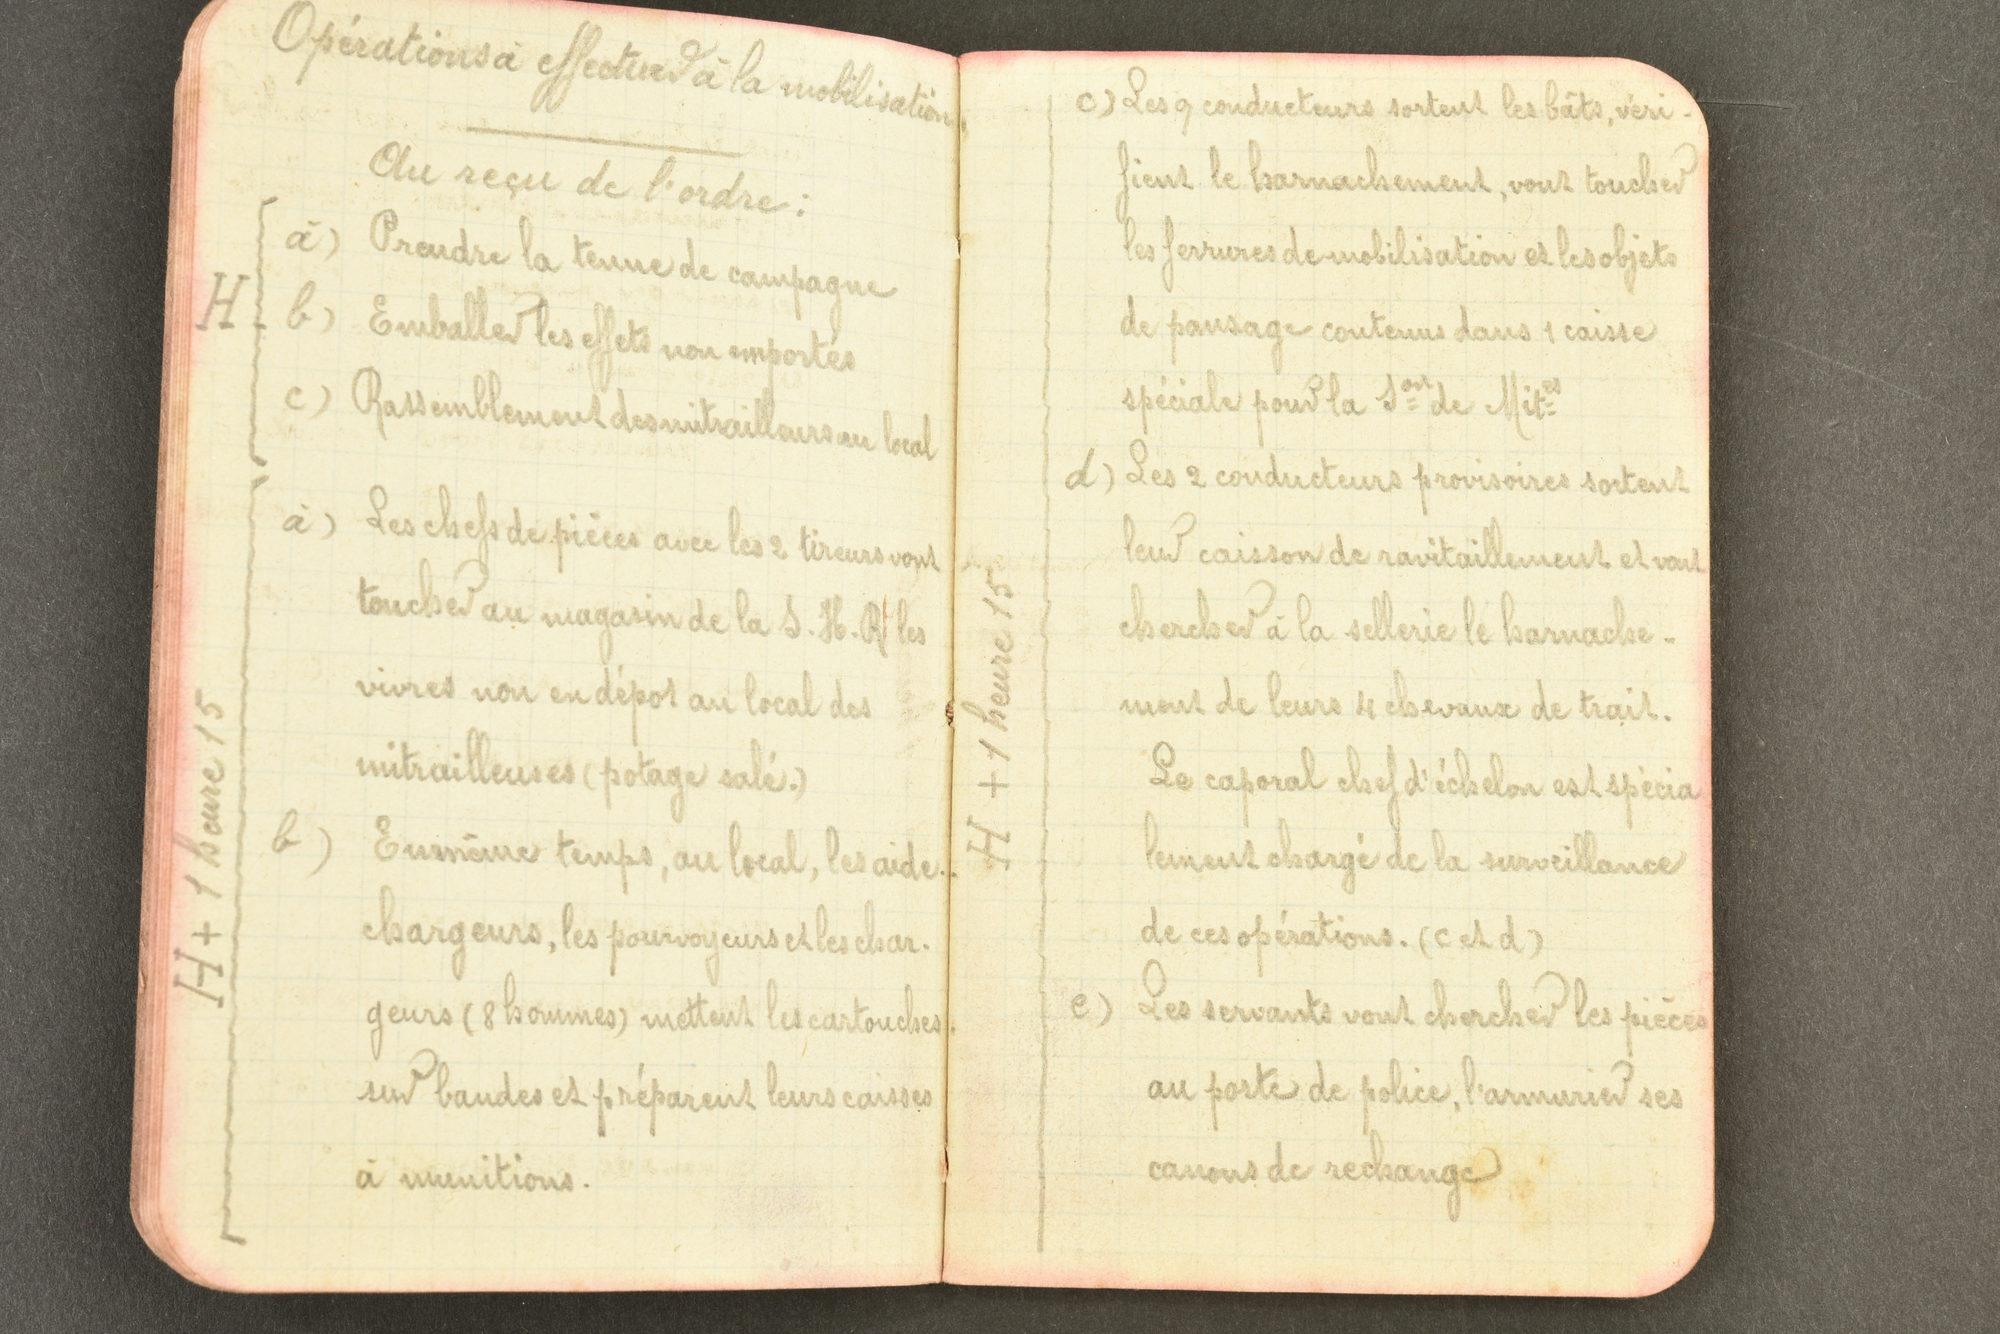 Opérations à effectuer à la mobilisation.
Au reçu de l'ordre :
H
a) Prendre la tenue de campagne
b) Emballer les effets non emportés
c) Rassemblement des mitrailleurs au local
H + 1 heure 15
a) Les chefs de pièces avec les 2 tireurs vont
toucher au magasin de la S. H. R les
vivres non en dépot au local des
mitrailleuses (potage salé.)
b) En même temps, au local, les aide-
chargeurs, les pourvoyeurs et les char-
geurs (8 hommes) mettent les cartouches
sur bandes et préparent leurs caisses
à munitions.
H + 1 heure 15
c) Les 9 conducteurs sortent les bâts, véri-
fient le harnachement, vont toucher
les ferrures de mobilisation et les objets
de pansage contenus dans 1 caisse
spéciale pour la Son de Mites
d) Les 2 conducteurs provisoires sortent
leur caisson de ravitaillement et vont
chercher à la sellerie le harnache-
ment de leurs 4 chevaux de trait.
Le caporal chef d'échelon est spécia
lement chargé de la surveillance
de ces opérations. (c et d)
e) Les servants vont chercher les pièces
au poste de police, l'armurier ses
canons de rechange